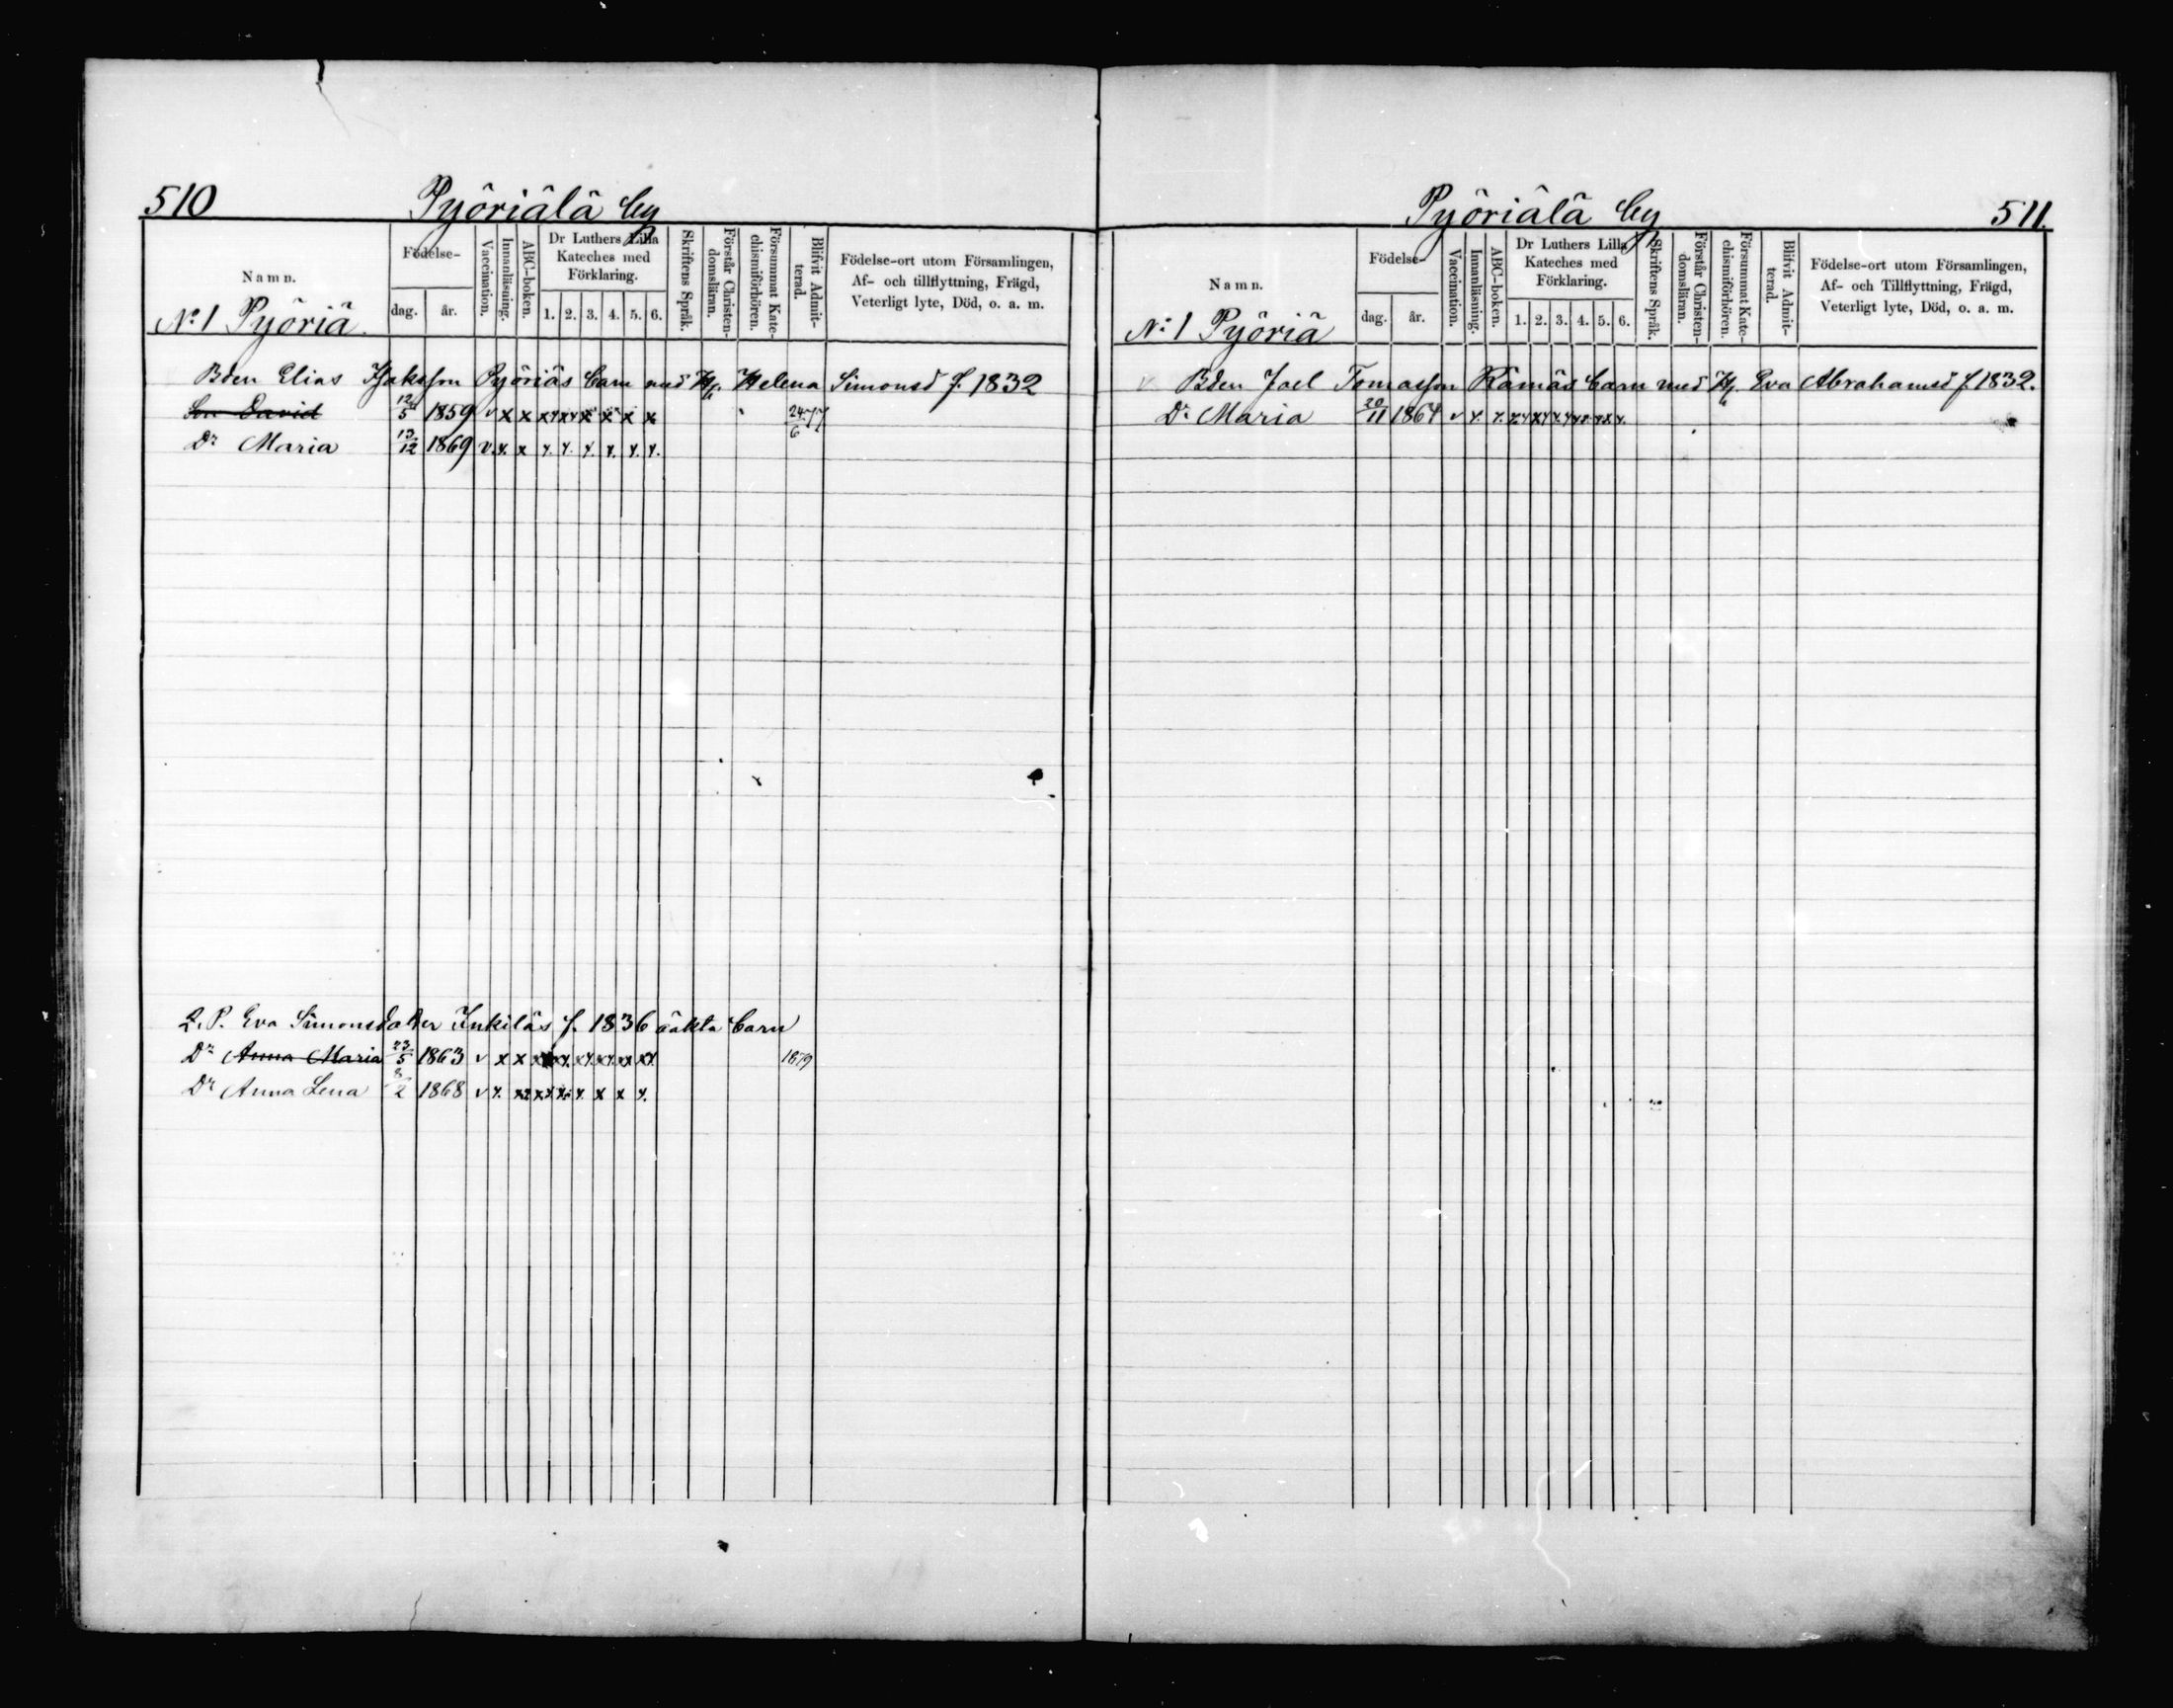 510
Pyöriälä by
Namn.
Födelse-
dag.
år.
Vaccination.
Innanläsning.
ABC-boken.
Dr Luthers Lilla
Kateches med
Förklaring.
1. 2. 3. 4. 5. 6.
Skriftens Språk.
Förstår Christen-
domsläran.
Försummat Kate-
chismiförhören.
Blifvit Admit-
terad.
Födelse-ort utom Församlingen,
Af- och tillflyttning, Frägd,
Veterligt lyte, Död, o. a. m.
No 1 Pyöriä
Bden Elias Isaksson Pyöriäs barn med H. Helena Simonsd f. 1832
Son David 12/5 1859 v x x x x x x x x 24/6 77
Dr Maria 13/12 1869 v x x x x x x x x
L. P. Eva Simonsdotter Inkiläs f. 1836 oäkta barn
Dr Anna Maria 23/5 1863 v x x x x x x x x 1879
Dr Anna Lena 8/2 1868 v x x x x x x x x
Pyöriälä by
511.
Namn.
Födelse-
dag.
år.
Vaccination.
Innanläsning.
ABC-boken.
Dr Luthers Lilla
Kateches med
Förklaring.
1. 2. 3. 4. 5. 6.
Skriftens Språk.
Förstår Christen-
domsläran.
Försummat Kate-
chismiförhören.
Blifvit Admit-
terad.
Födelse-ort utom Församlingen,
Af- och Tillflyttning, Frägd,
Veterligt lyte, Död, o. a. m.
No 1 Pyöriä
v Bden Joel Tomasson Rämäs barn med H. Eva Abrahamsd f 1832.
Dr Maria 20/11 1864 v x x x x x x x x